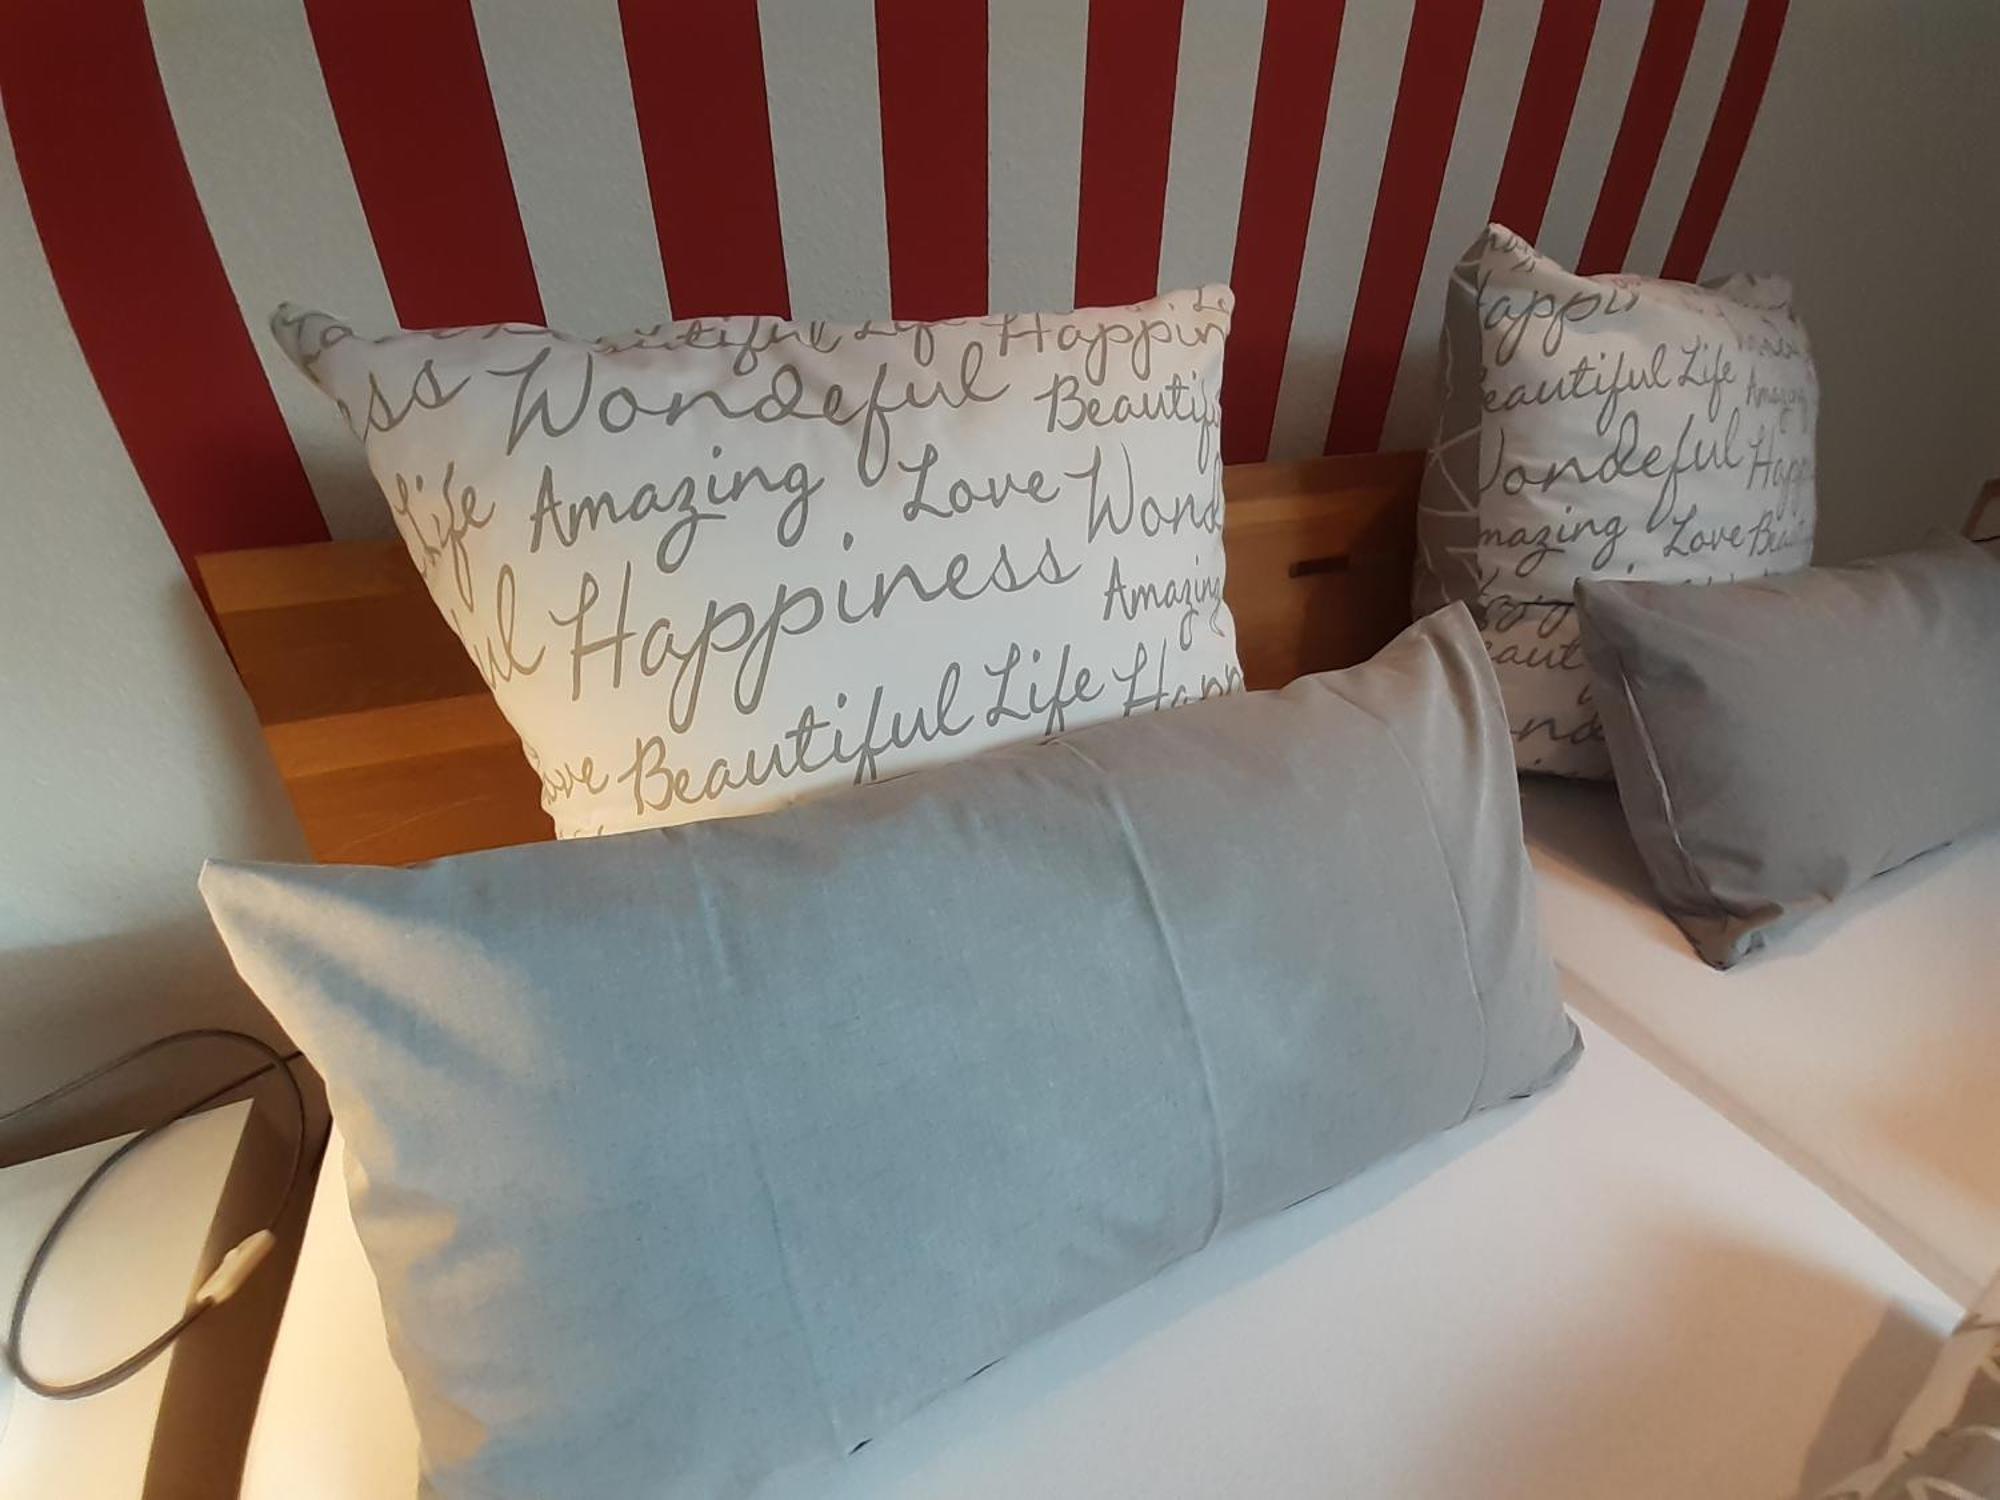 Beautiful Life Happin
ess Wondeful Beautifu
Life Amazing Love Wond
ul Happiness Amazing
ove Beautiful Life Happ
Happi
eautiful Life Amazing
Wondeful Happ
mazing Love Beau
eaut
onde